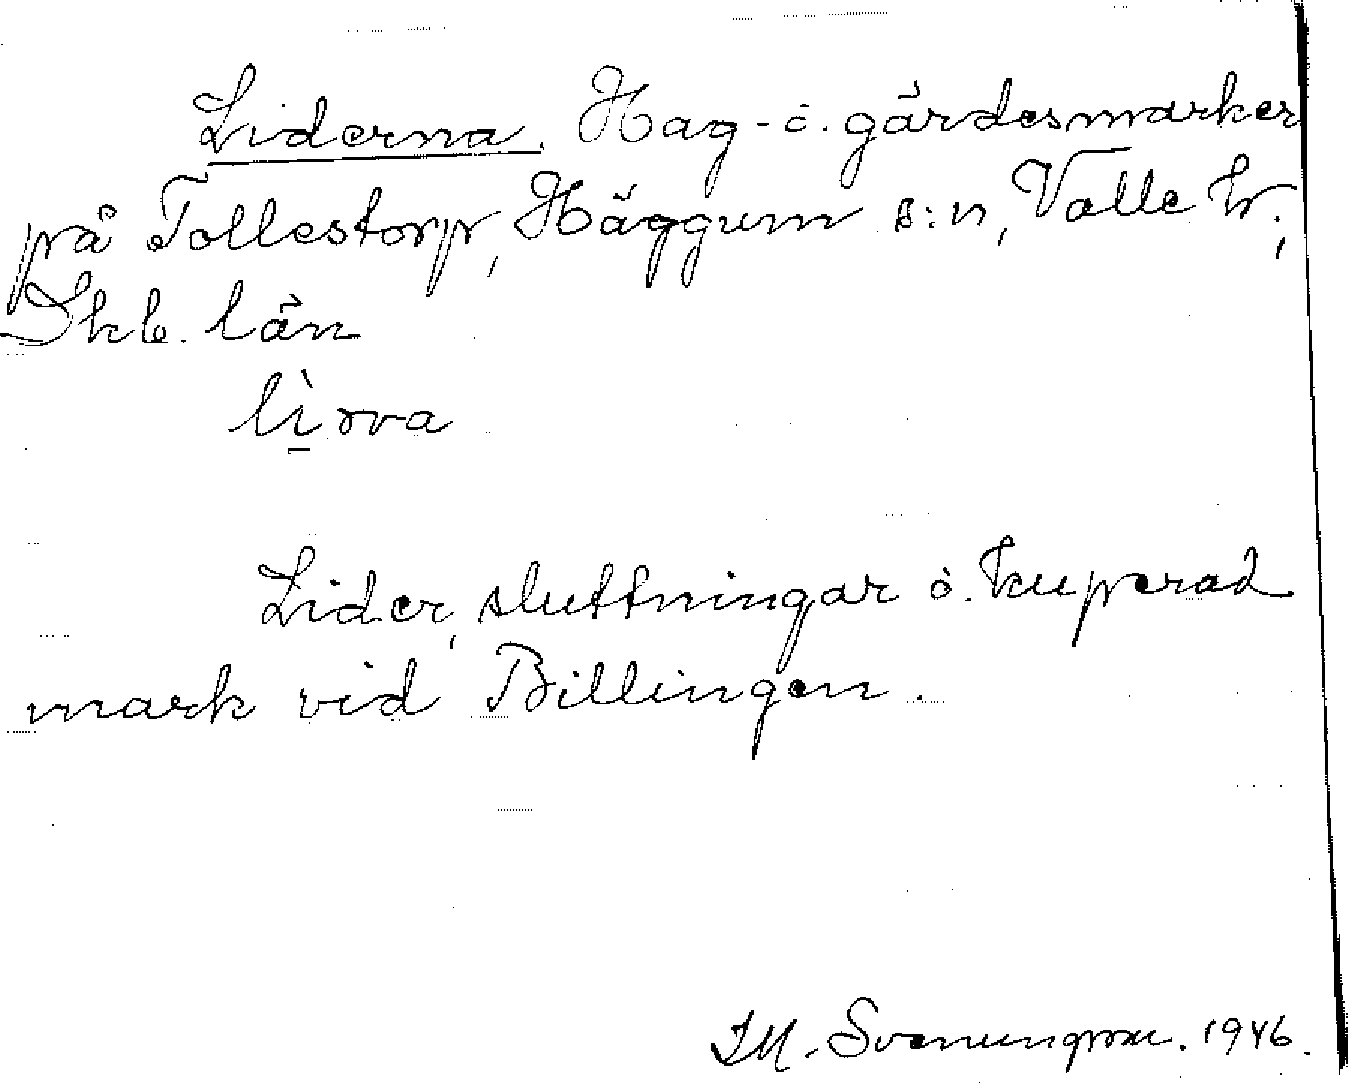 Liderna. Hag- o. gärdesmarker
på Tollestorp, Häggum s:n, Valle hr,
Skb. län
lìrva
Lider, sluttningar o. kuperad
mark vid Billingen.
I.M. Svenungsson. 1946.